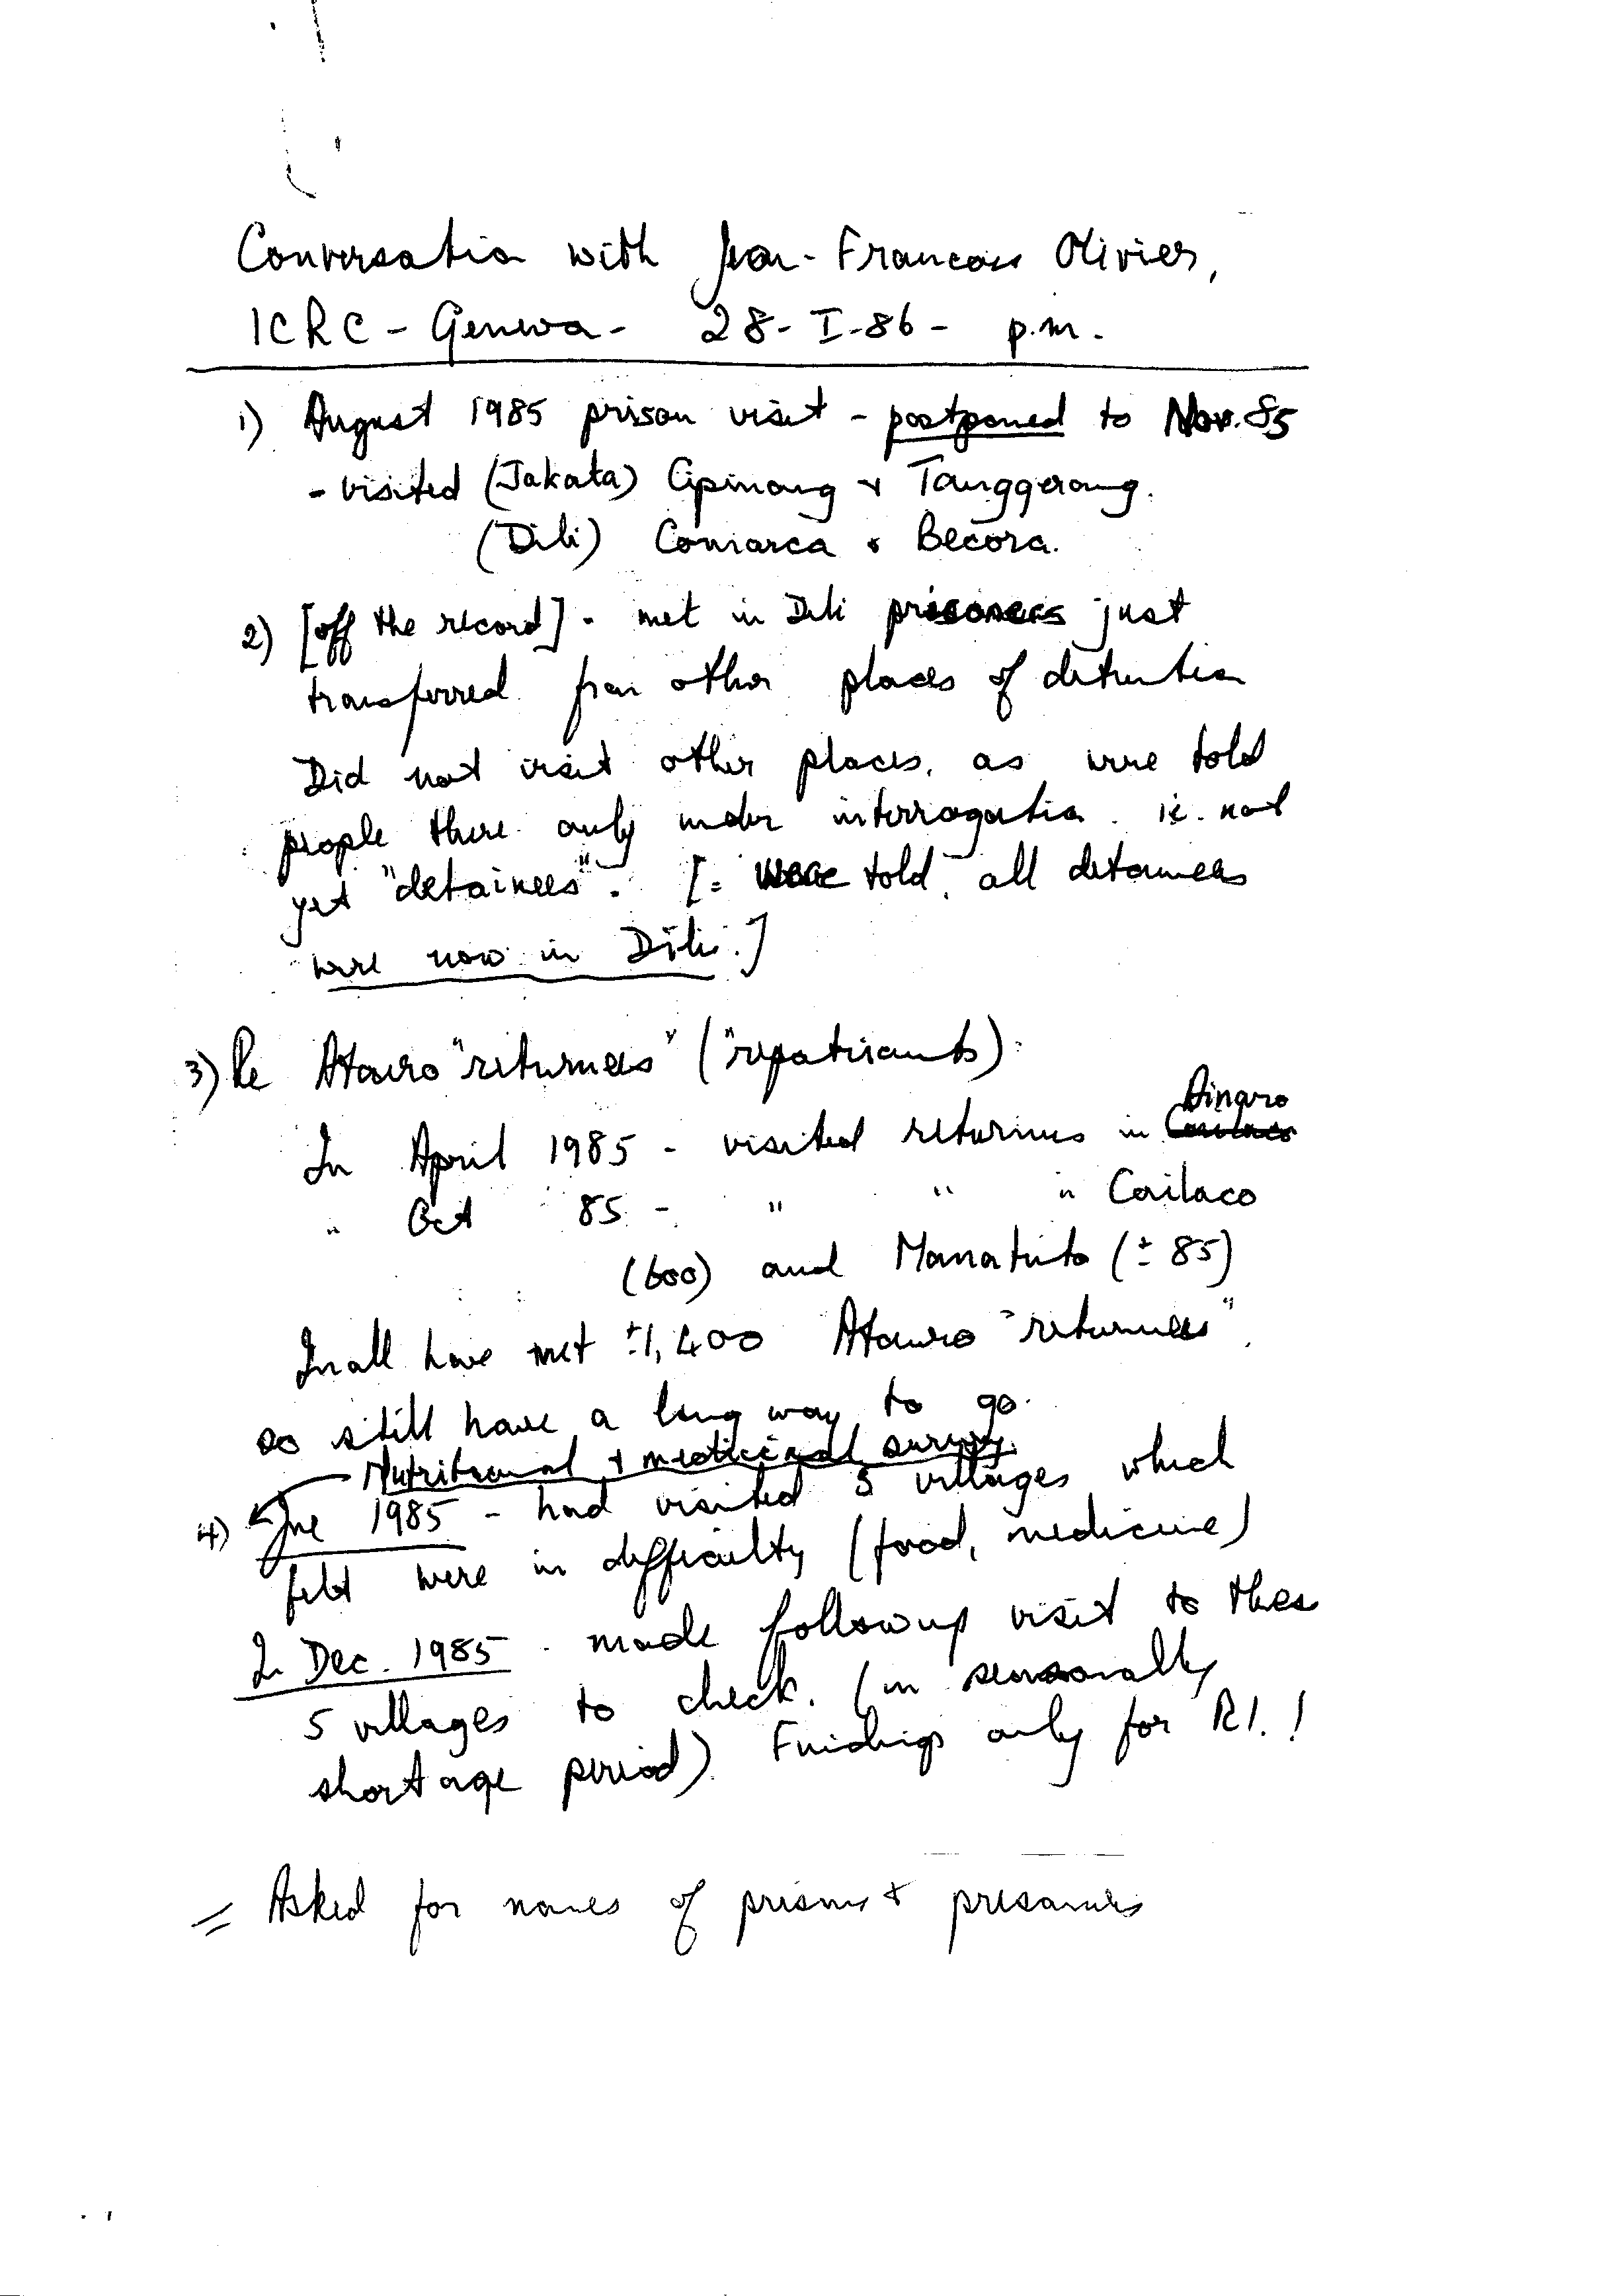 Conversation with Jean-Francois Olivier,
ICRC - Geneva - 28-I-86 - p.m.
1) August 1985 prison visit - postponed to Nov. 85
- visited (Jakata) Cipinang + Tanggerang.
(Dili) Comarca & Becora.
2) [off the record] - met in Dili prisoners just
transferred from other places of detention
Did not visit other places, as were told
people there only under interrogation. ie. not
yet "detainees". [= were told, all detainees
were now in Dili.]
3) Re Atauro "returnees" ("repatriants"):
Ainaro
In April 1985 - visited returnees in Cailaco
" Oct 85 - " " in Cailaco
(600) and Manatuto (± 85)
In all have met ±1,400 Atauro "returnees".
so still have a long way to go.
Nutritional + medicinal survey
4) June 1985 - had visited 5 villages which
felt were in difficulty (food, medicine)
In Dec. 1985 - made followup visit to these
5 villages to check. (in seasonally
shortage period). Findings only for R.I.!
= Asked for names of prisons + prisoners